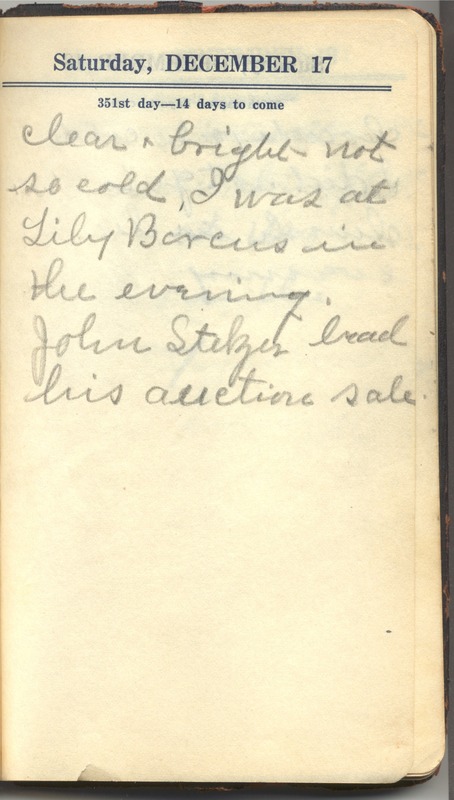 Saturday, DECEMBER 17
351st day—14 days to come
clear & bright not
so cold, I was at
Lily Borcus in
the evening.
John Stelzer had
his auction sale.